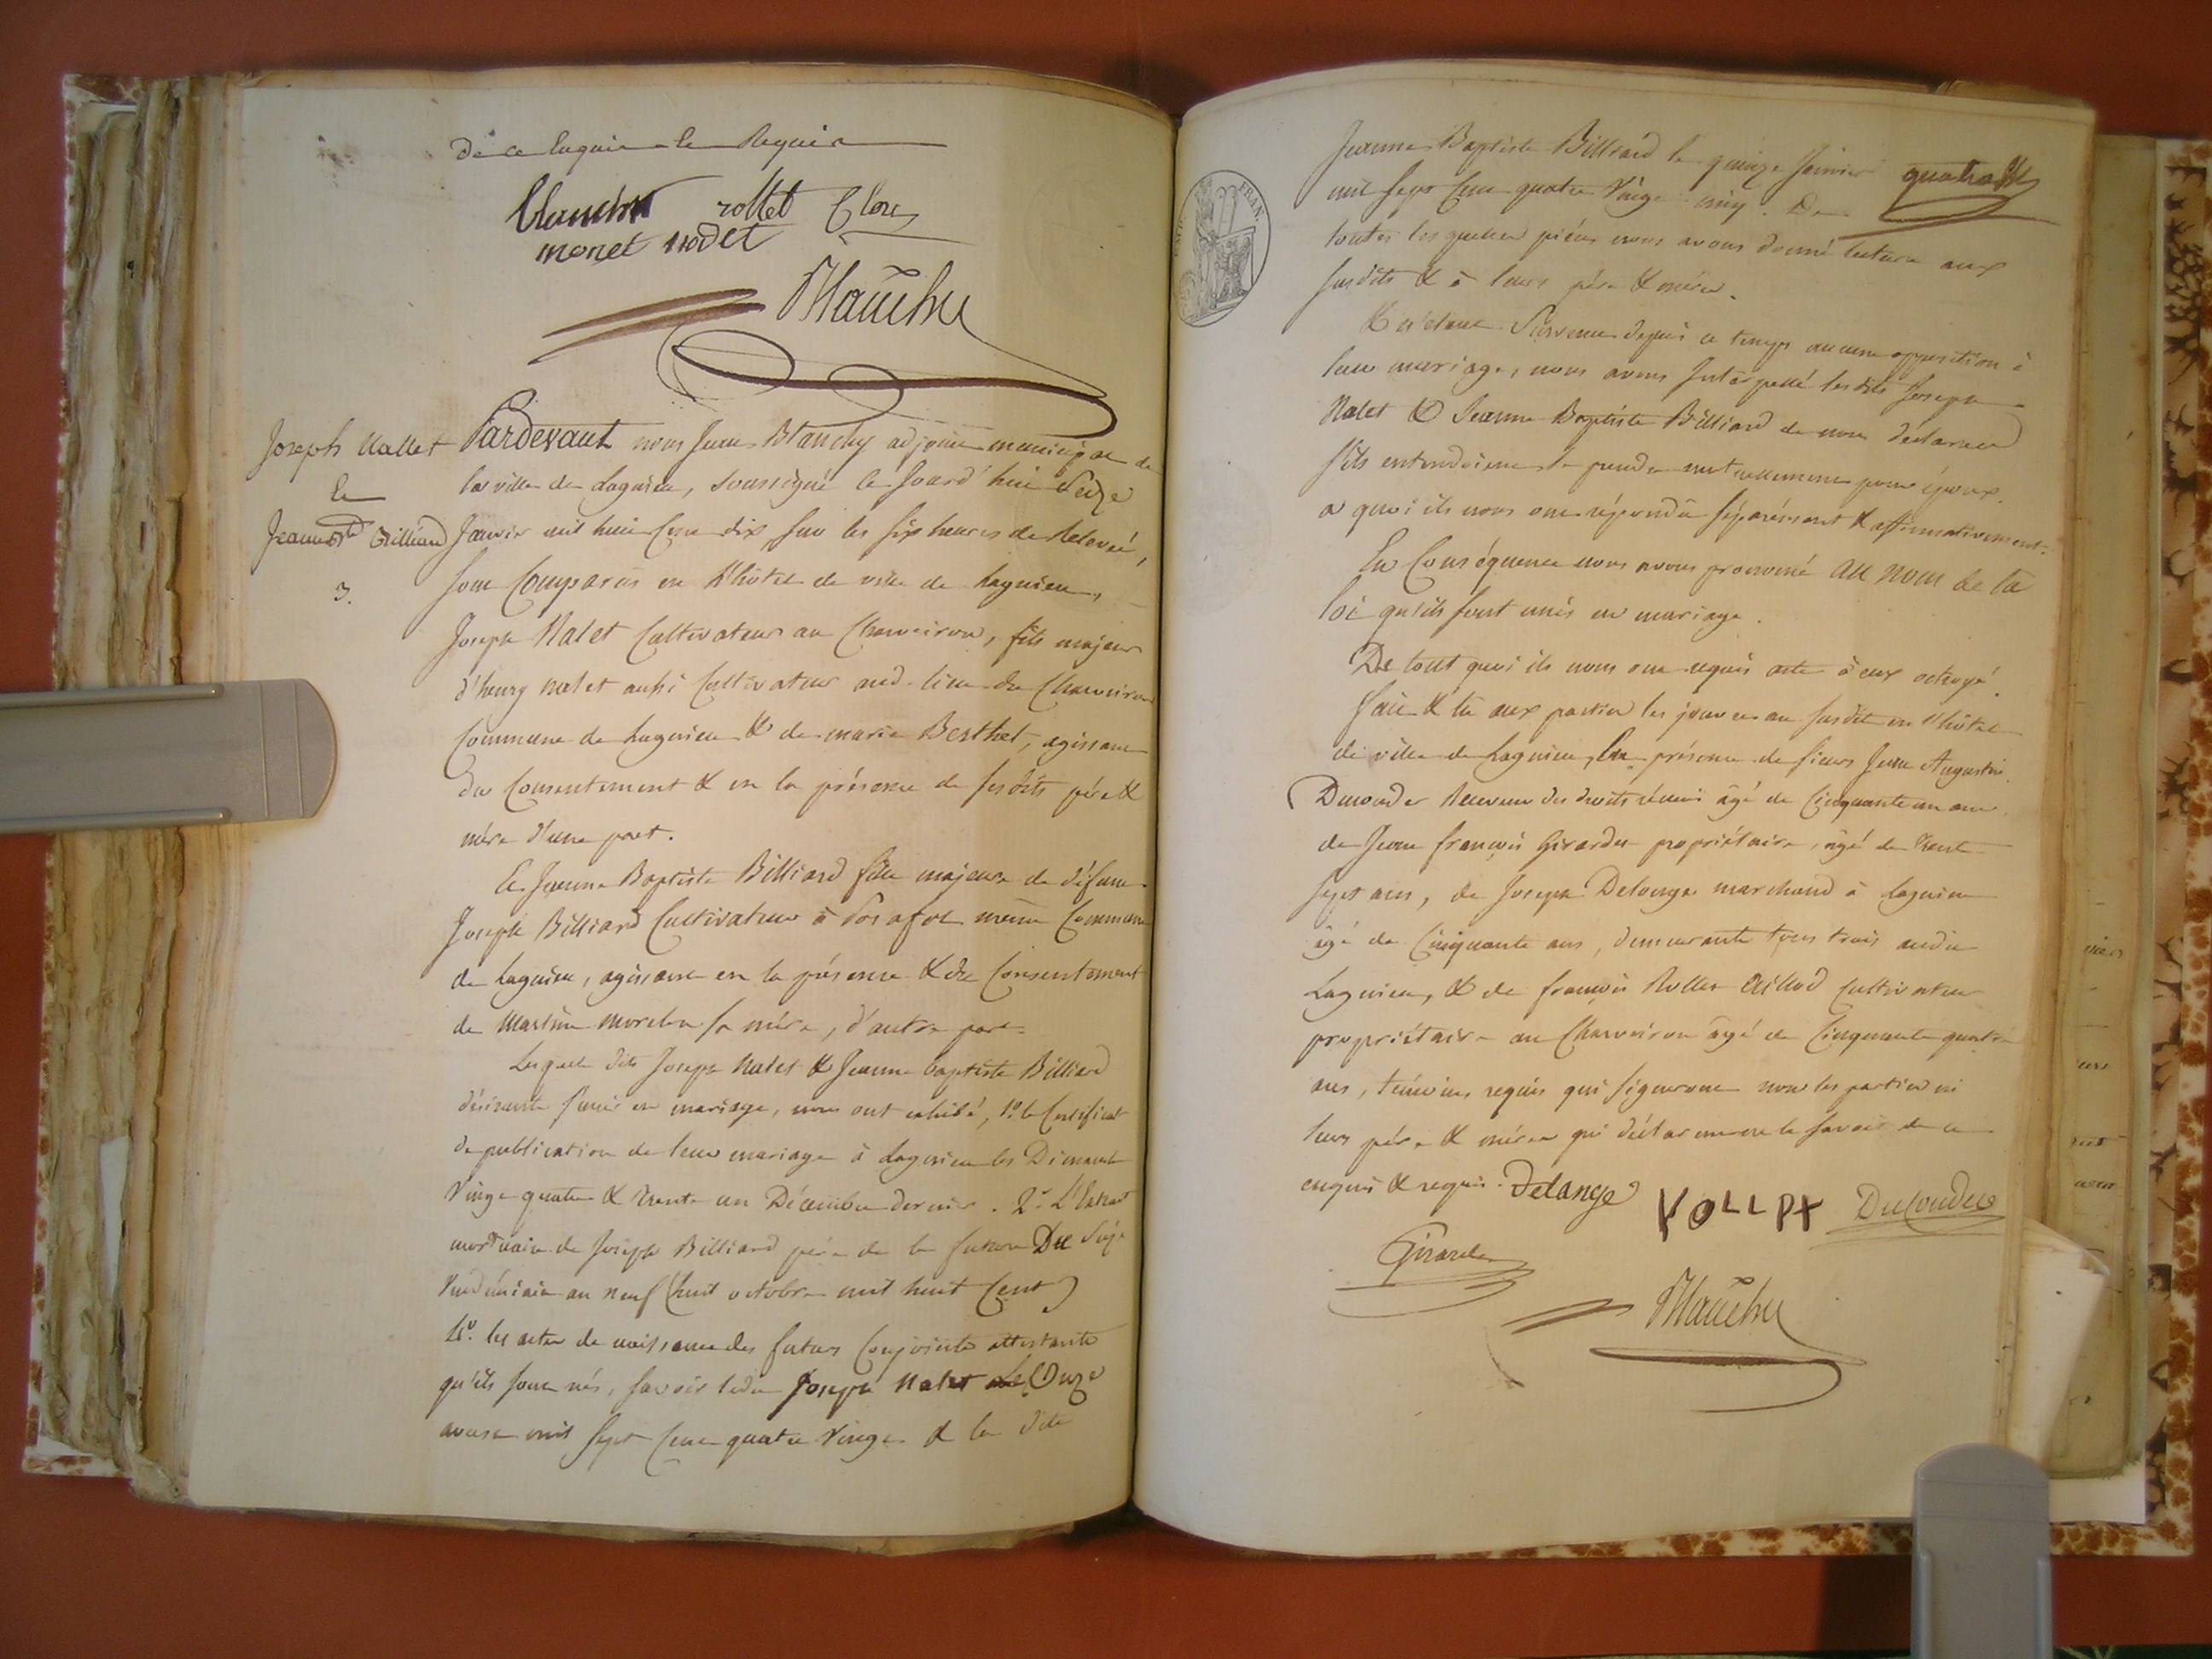 de ce enquis & Requis
Blanchet rollet Clerc
monet nodet
Blanchy
Joseph Nallet
Et
Jeanne Bte Billiard
3.
Pardevant nous Jean Blanchy adjoint municipal de
la ville de Lagnieu, soussigné ce jourd'hui Seize
Janvier mil huit Cent dix sur les six heures de Relevée,
sont Comparus en l'hôtel de ville de Lagnieu,
Joseph Nalet Cultivateur au Charveiron, fils majeur
d'henry nalet aussi Cultivateur aud. lieu du Charveiron
Commune de Lagnieu & de marie Berthet, agissant
du Consentement & en la présence de sesdits père &
mère d'une part.
Et Jeanne Baptiste Billiard fille majeure de défunt
Joseph Billiard Cultivateur à Posafol même Commune
de Lagnieu, agissant en la présence & du Consentement
de sa mère, d'autre part.
Lesquels dits Joseph Nalet & Jeanne baptiste Billiard
désirants s'unir en mariage, nous ont exhibé, 1º le Certificat
de publication de leur mariage à Lagnieu les Dimanches
Vingt quatre & trente un Décembre dernier. 2º L'Extrait
mortuaire de Joseph Billiard père de la future Du Seize
Vendémiaire an neuf (huit octobre mil huit Cent)
les actes de naissance des futurs Conjoints attestants
qu'ils sont nés, savoir ledit Joseph Nalet le Onze
mil sept Cent quatre Vingt & la dite
Jeanne Baptiste Billiard le quinze Janvier quatre
mil sept Cent quatre Vingt cinq. De
toutes lesquelles pièces nous avons donné lecture aux
susdits & à leurs père & mères.
& n'étant Survenu depuis ce temps aucune opposition à
leur mariage, nous avons Interpellé lesdits Joseph
Nalet & Jeanne Baptiste Billiard de nous déclarer
s'ils entendoient se prendre mutuellement pour époux.
a quoi ils nous ont répondu séparément & affirmativement.
En Conséquence nous avons prononcé au nom de la
loi qu'ils sont unis en mariage.
De tout quoi ils nous ont requis acte à eux octroyé.
fait & lu aux parties les jour et an susdits en l'hôtel
de ville de Lagnieu, En présence de sieurs Jean Augustin
Ducouder Receveur des droits réunis âgé de Cinquante un ans,
de Jean françois Girardet propriétaire, âgé de trente
sept ans, de Joseph Delange marchand à Lagnieu
âgé de Cinquante ans, demeurants tous trois audit
Lagnieu, & de françois Rollet cultivateur
propriétaire au Charveiron âgé de Cinquante quatre
ans, témoins requis qui signeront non les parties ni
leurs père & mères qui déclarent ne le savoir de ce
enquis & requis. Delange ROLLET Ducouder
Girardet
Blanchy